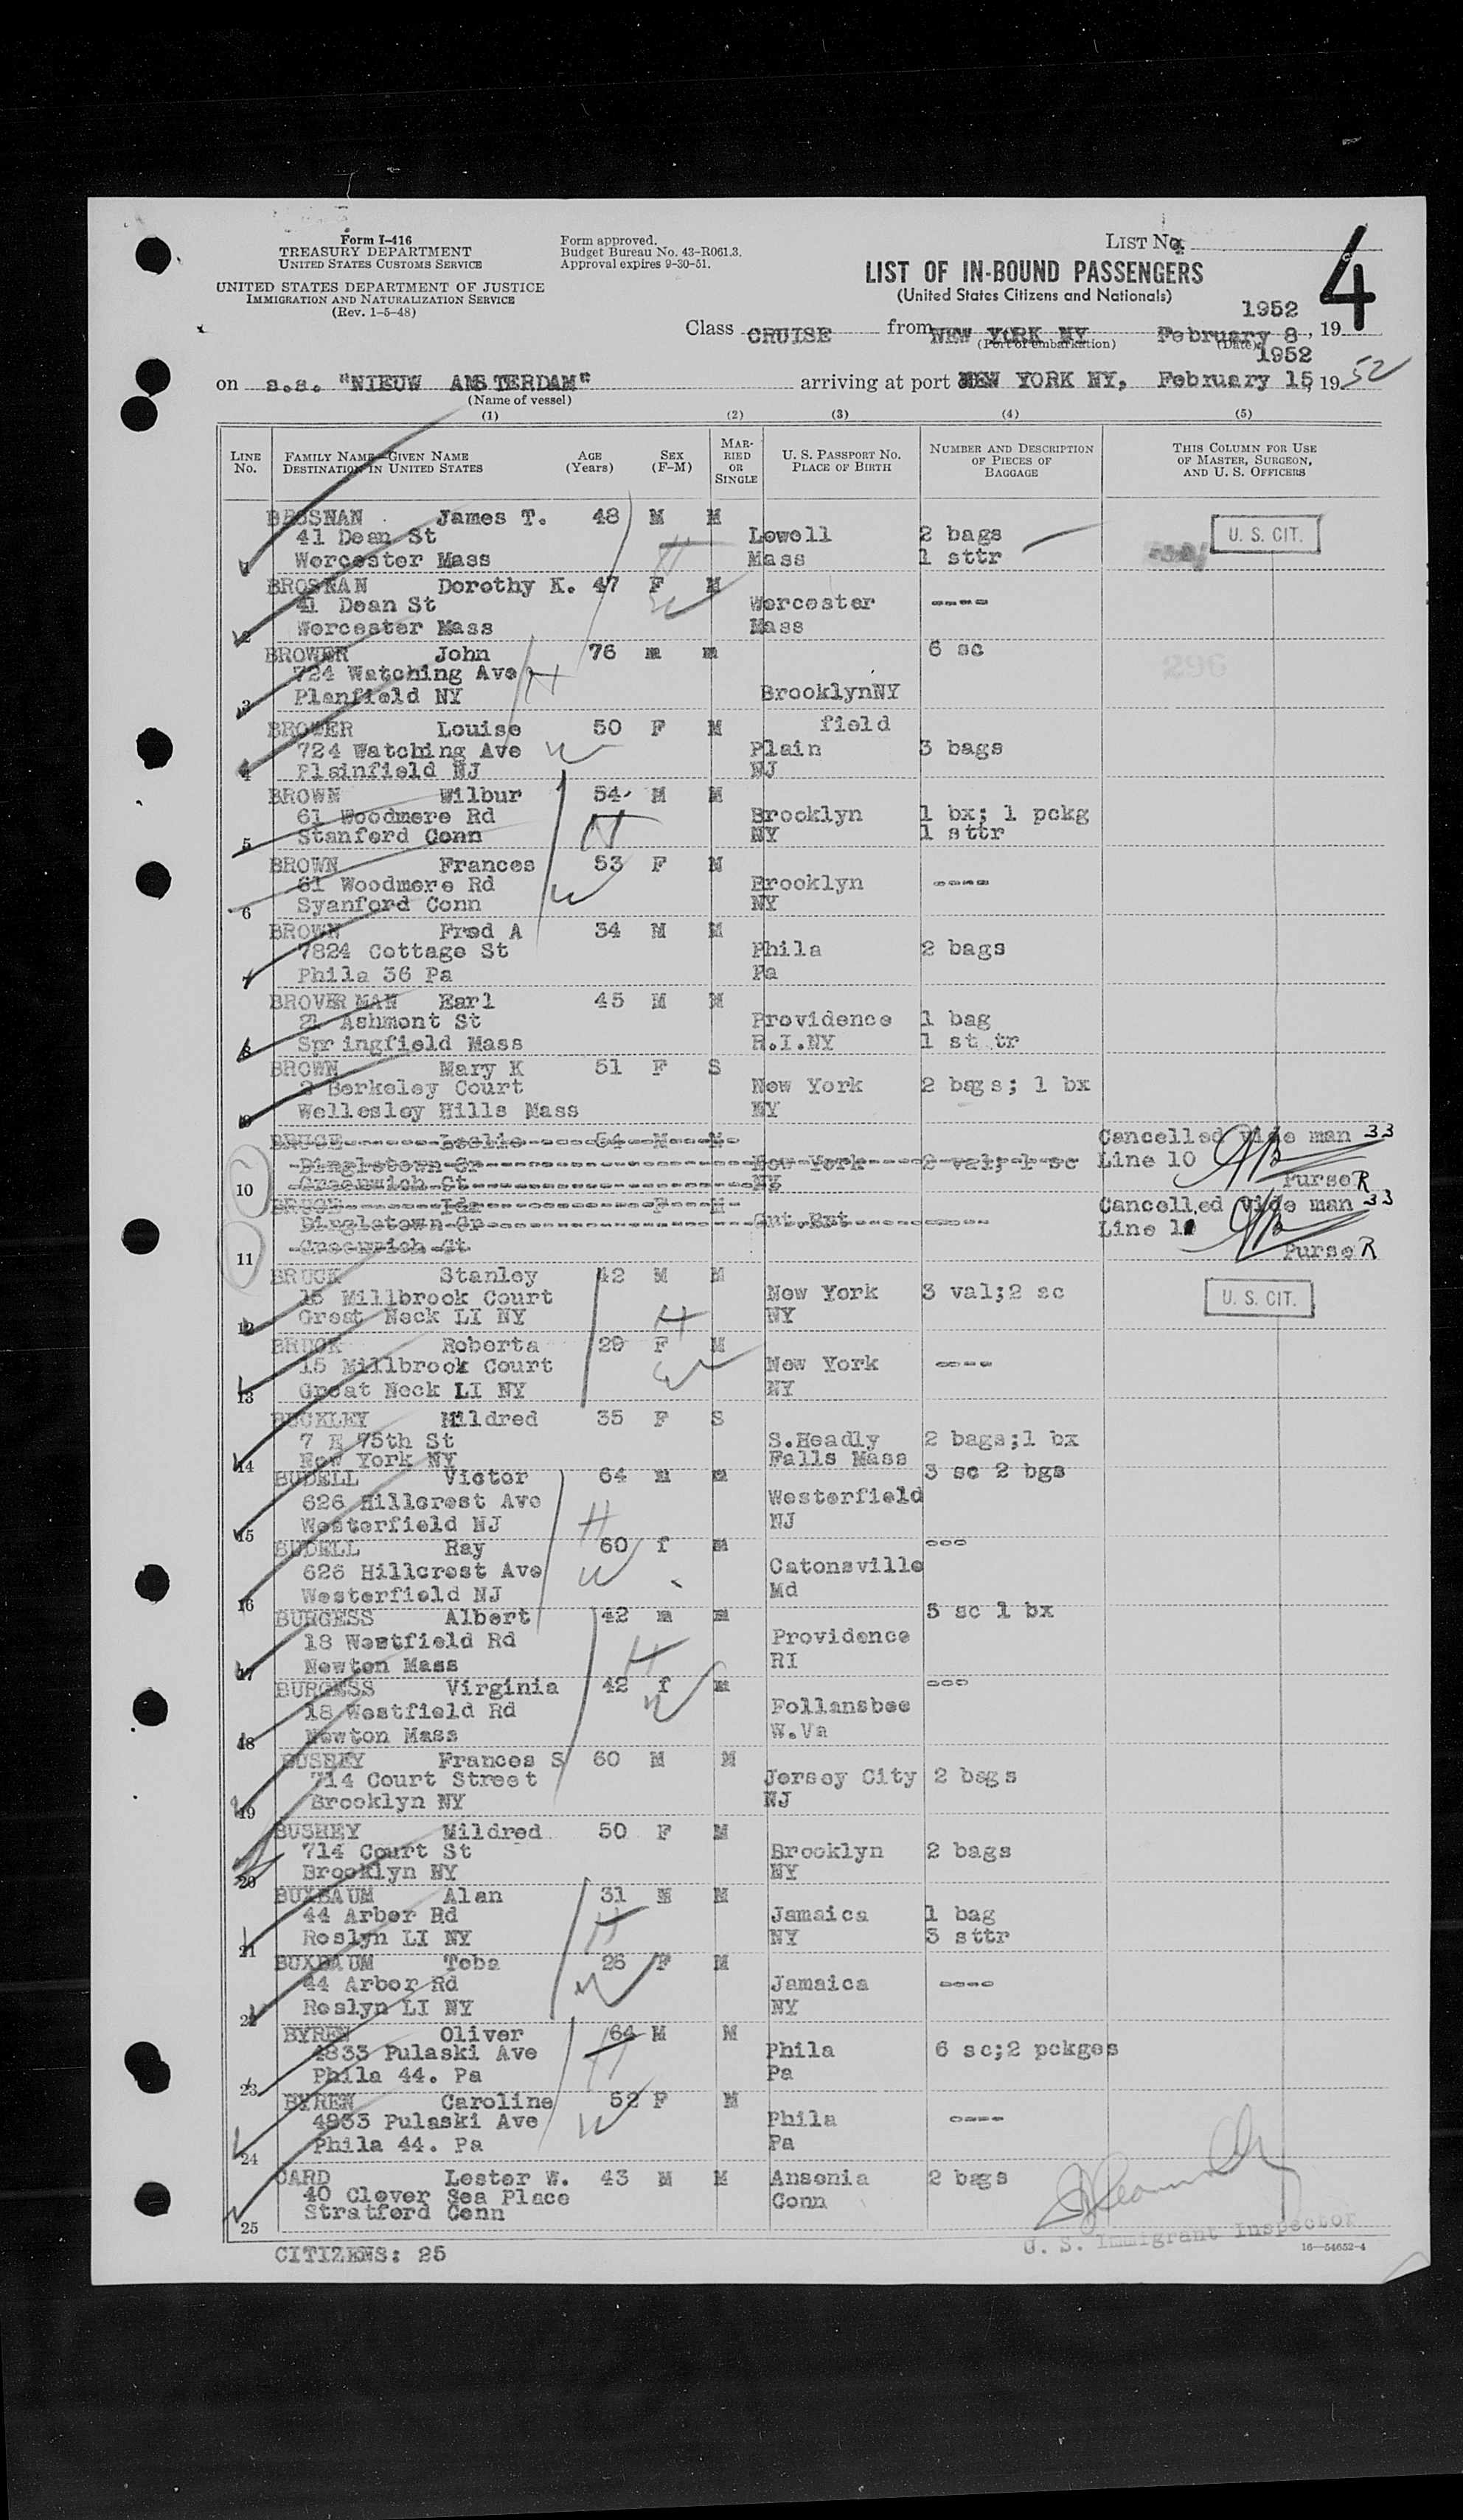 Form I-416
TREASURY DEPARTMENT
UNITED STATES CUSTOMS SERVICE
UNITED STATES DEPARTMENT OF JUSTICE
IMMIGRATION AND NATURALIZATION SERVICE
(Rev. 1-5-48)
Form approved.
Budget Bureau No. 43-R061.3.
Approval expires 9-30-51.
LIST No.
4
LIST OF IN-BOUND PASSENGERS
(United States Citizens and Nationals)
1952
Class CRUISE from NEW YORK NY February 8, 19
(Port of embarkation) (Date)
1952
on s.s. "NIEUW AMSTERDAM" arriving at port NEW YORK NY, February 15, 1952
(Name of vessel)
(1) (2) (3) (4) (5)
LINE No. FAMILY NAME—GIVEN NAME DESTINATION IN UNITED STATES AGE (Years) SEX (F-M) MARRIED OR SINGLE U. S. PASSPORT NO. PLACE OF BIRTH NUMBER AND DESCRIPTION OF PIECES OF BAGGAGE THIS COLUMN FOR USE OF MASTER, SURGEON, AND U. S. OFFICERS
BROSNAN James T. 48 M M
41 Dean St Lowell 2 bags U. S. CIT.
1 Worcester Mass Mass 1 sttr
BROSNAN Dorothy K. 47 F M
41 Dean St Worcester ----
2 Worcester Mass Mass
BROWER John 76 m m 6 sc
724 Watching Ave H 296
3 Planfield NY BrooklynNY
BROWER Louise 50 F M field
724 Watching Ave W Plain 3 bags
4 Plainfield NJ NJ
BROWN Wilbur 54 M M
61 Woodmere Rd H Brooklyn 1 bx; 1 pckg
5 Stanford Conn NY 1 sttr
BROWN Frances 53 F M
61 Woodmere Rd W Brooklyn ----
6 Syanford Conn NY
BROWN Fred A 34 M M
7824 Cottage St Phila 2 bags
7 Phila 36 Pa Pa
BROVERMAN Earl 45 M M
21 Ashmont St Providence 1 bag
8 Springfield Mass R.I.NY 1 sttr
BROWN Mary K 51 F S
3 Berkeley Court New York 2 bags; 1 bx
9 Wellesley Hills Mass NY
BRUCE Leslie 54 M M Cancelled vide man 33
Dingletown Gr New York 2 val; 1 sc Line 10
10 Greenwich Ct NY PurseR
BRUCE Ida F M Cancelled vide man 33
Dingletown Gr Gnt.Brt ---- Line 11
11 Greenwich Ct PurseR
BRUCK Stanley 42 M M
15 Millbrook Court New York 3 val;2 sc U. S. CIT.
12 Great Neck LI NY H NY
BRUCK Roberta 29 F M
15 Millbrook Court W New York ----
13 Great Neck LI NY NY
BUCKLEY Mildred 35 F S
7 E 75th St S.Headly 2 bags;1 bx
14 New York NY Falls Mass
BUDELL Victor 64 m m 3 sc 2 bgs
626 Hillcrest Ave Westerfield
15 Westerfield NJ H NJ
BUDELL Ray 60 f m ---
626 Hillcrest Ave W Catonsville
16 Westerfield NJ Md
BURGESS Albert 42 m m 3 sc 1 bx
18 Westfield Rd H Providence
17 Newton Mass RI
BURGESS Virginia 42 f m ---
18 Westfield Rd W Follansbee
18 Newton Mass W.Va
BUSHEY Frances S 60 M M
714 Court Street Jersey City 2 bags
19 Brooklyn NY NJ
BUSHEY Mildred 50 F M
714 Court St Brooklyn 2 bags
20 Brooklyn NY NY
BUXBAUM Alan 31 M M
44 Arbor Rd H Jamaica 1 bag
21 Roslyn LI NY NY 3 sttr
BUXBAUM Toba 26 F M
44 Arbor Rd W Jamaica ----
22 Roslyn LI NY NY
BYREN Oliver 64 M M
4833 Pulaski Ave H Phila 6 sc;2 pckges
23 Phila 44. Pa Pa
BYREN Caroline 52 F M
4933 Pulaski Ave W Phila ----
24 Phila 44. Pa Pa
CARD Lester W. 43 M M Ansonia 2 bags
40 Clover Sea Place Conn
25 Stratford Conn
U. S. Immigrant Inspector
CITIZENS: 25
16—54652-4